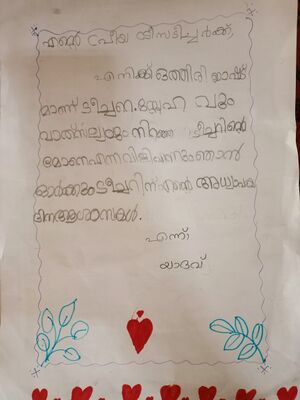 എന്റെ പ്രീയ ടീച്ചർക്ക്,
എനിക്ക് ഒത്തിരി ഇഷ്ട
മാണ് ടീച്ചറെ. സ്നേഹ വും
വാത്സല്യവും നിറഞ്ഞ ടീച്ചറിന്റെ
മോനെഎന്നവിളിഎന്നുംഞാൻ
ഓർക്കുംടീച്ചറിന്എന്റെ അധ്യാപക
ദിനആശംസകൾ.
എന്ന്
യാദവ്